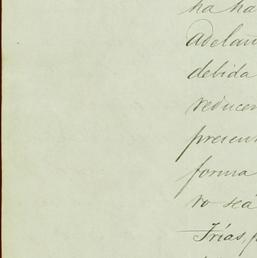 ha ha
adelan
debida
reducen
presen
forma
ro sea
Frías, p